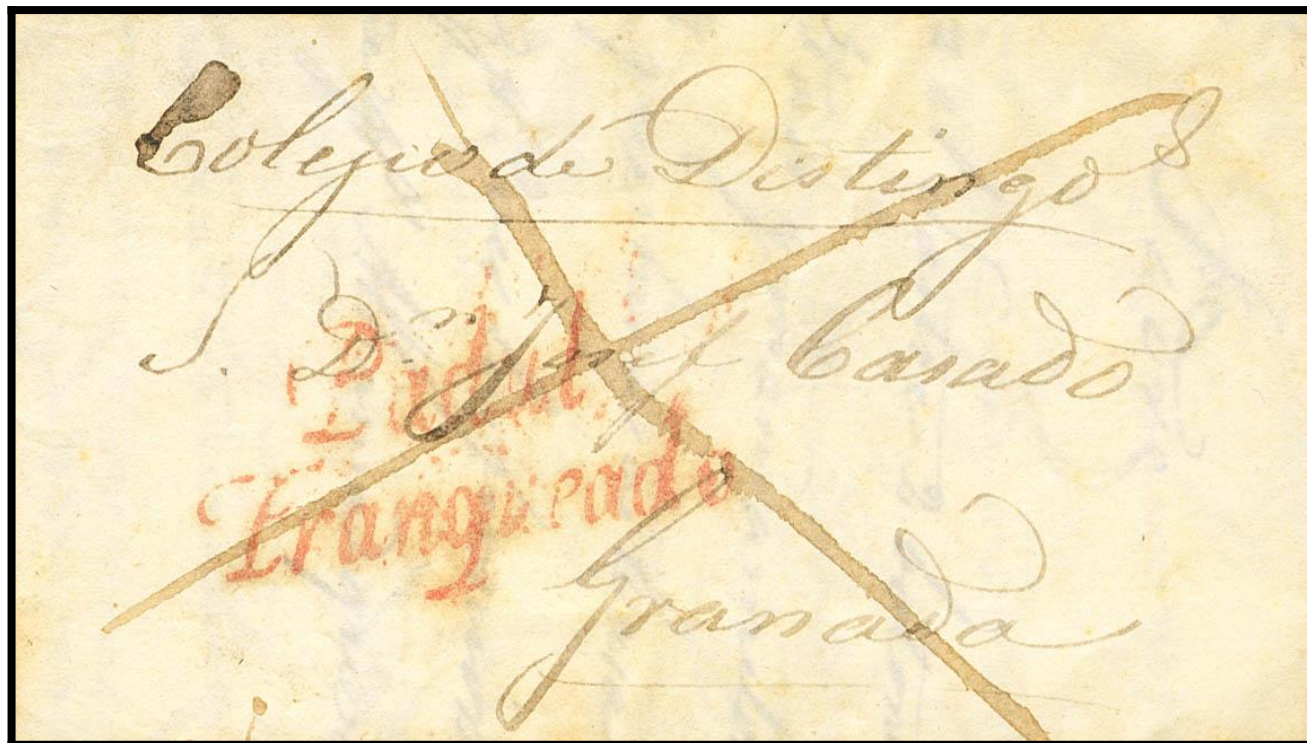 Colegio de Disting^os
S. D.^n José Casado
Padul.
Franqueado
Granada